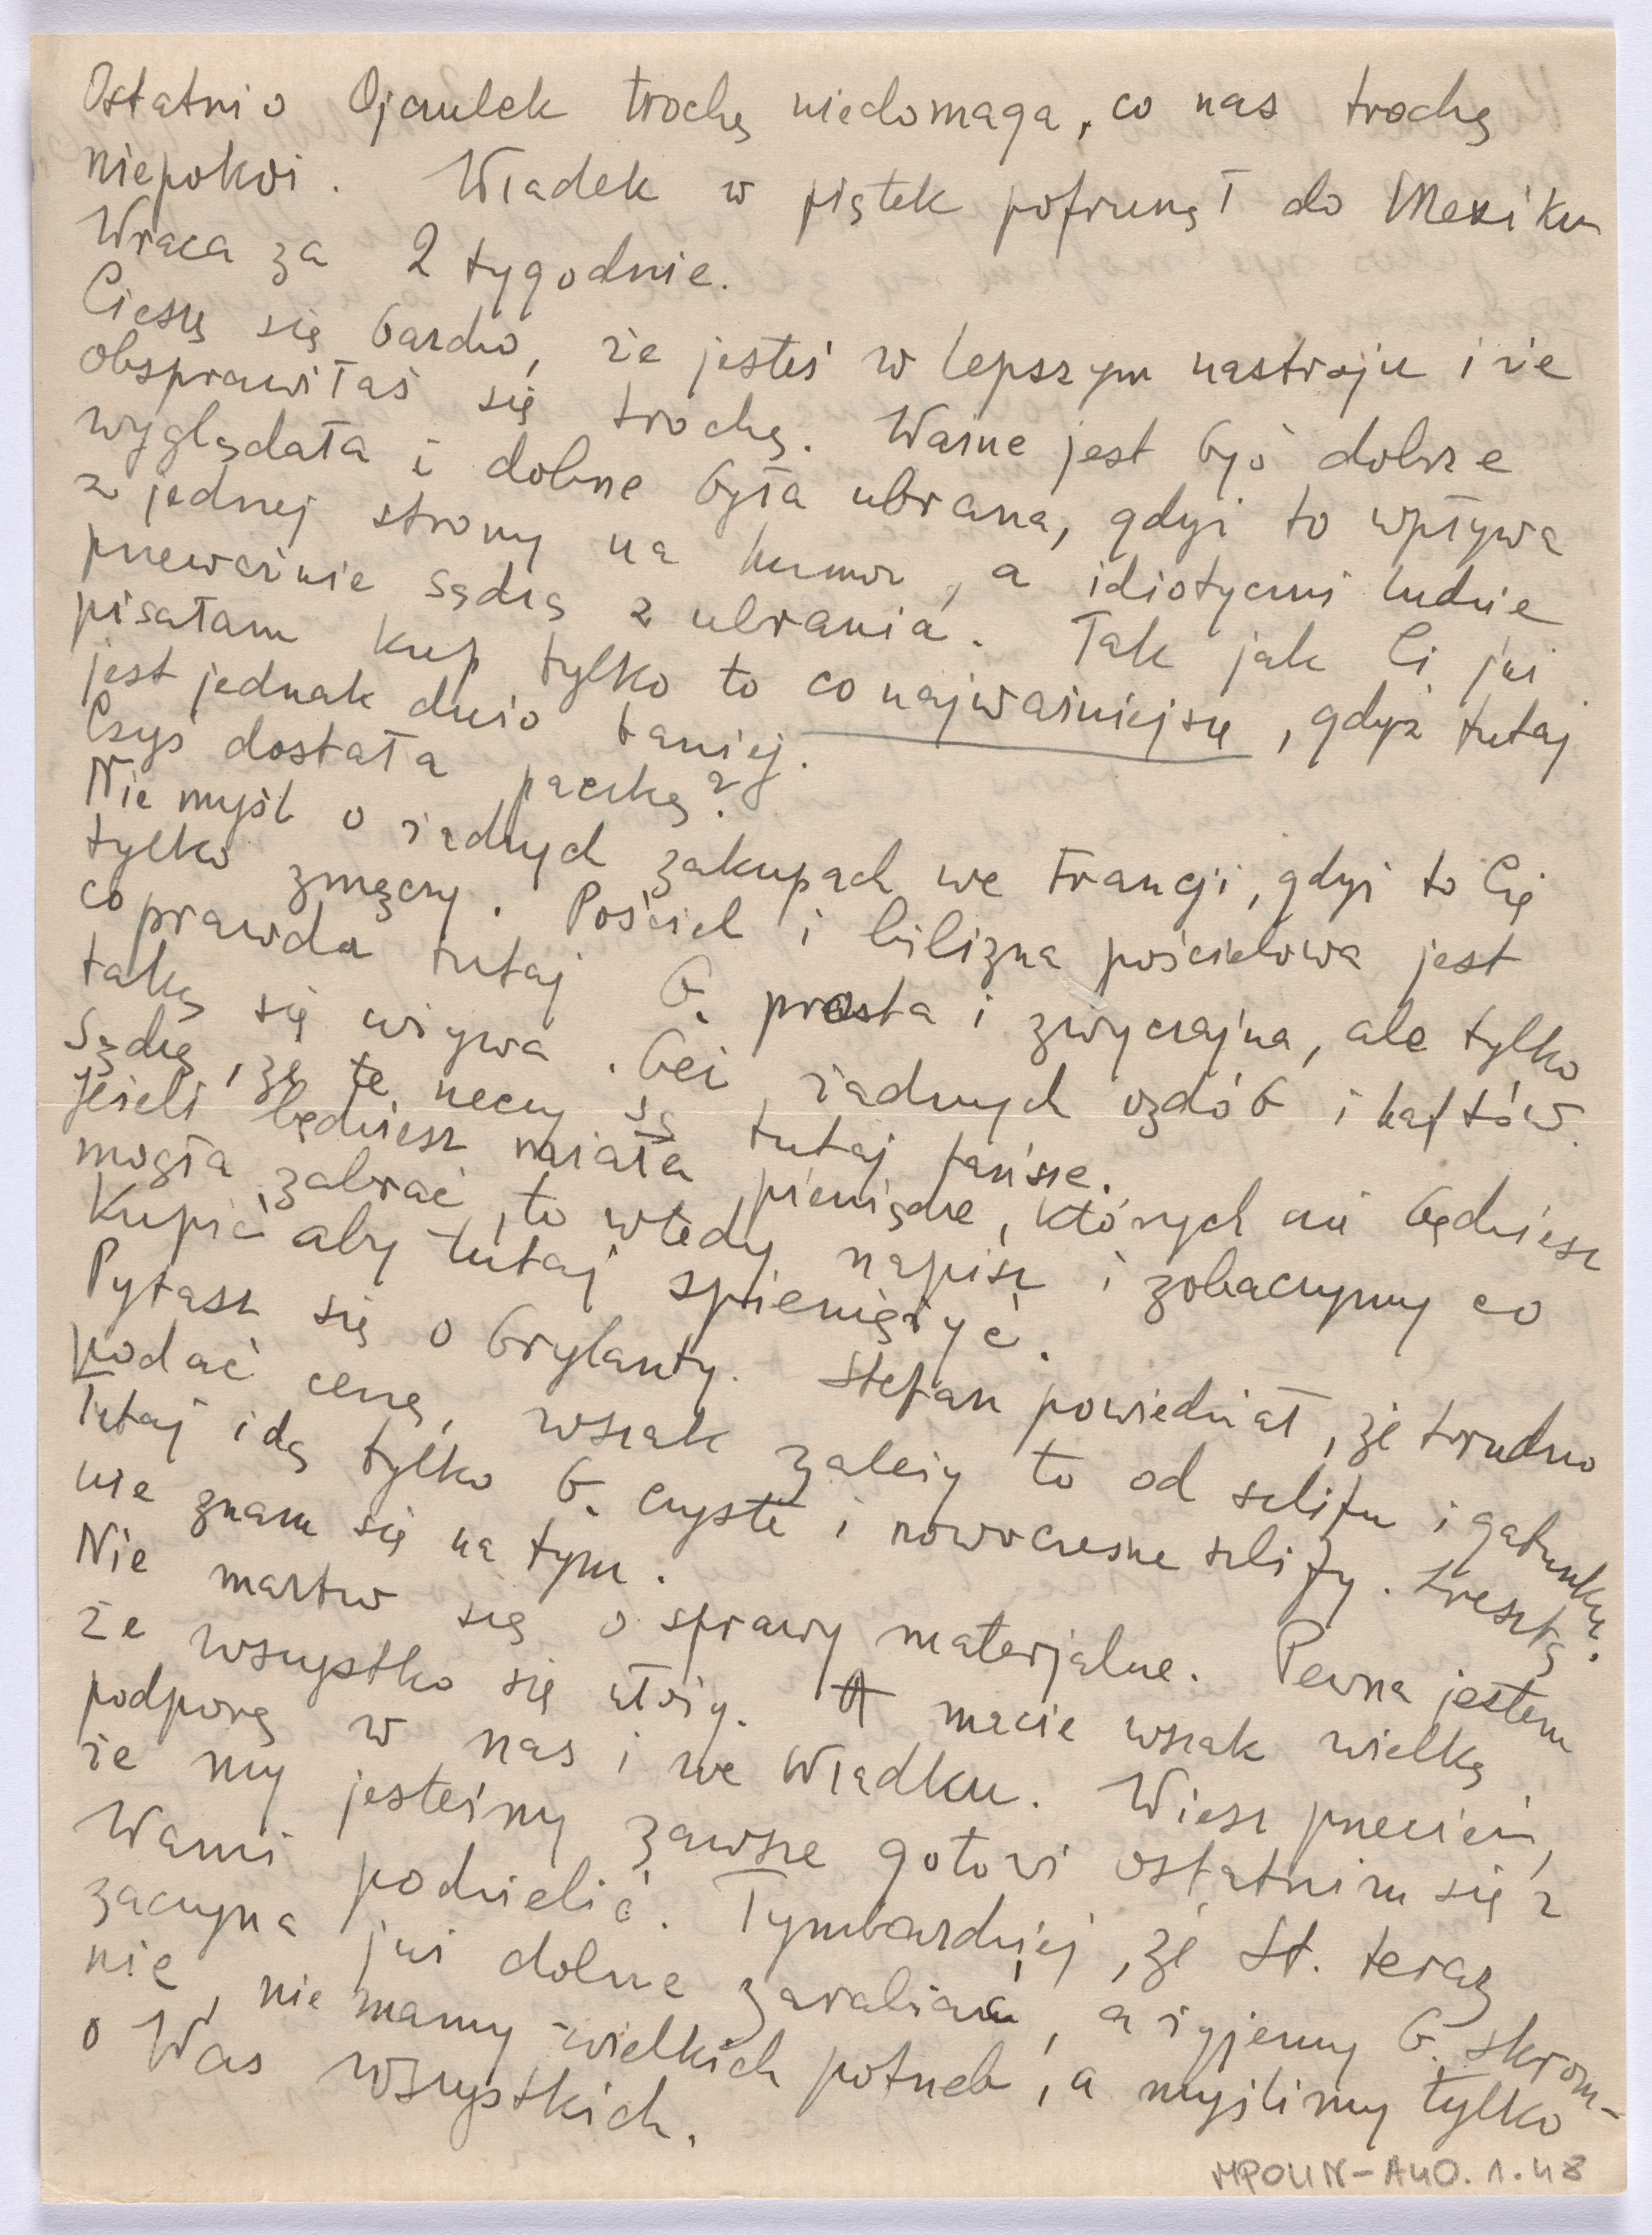 Ostatnio Ojczulek trochę niedomaga, co nas trochę
niepokoi. Władek w piątek pofrunął do Mexiku
Wraca za 2 tygodnie.
Cieszę się bardzo, że jesteś w lepszym nastroju i że
obsprawiłaś się trochę. Ważne jest byś dobrze
wyglądała i dobrze była ubrana, gdyż to wpływa
z jednej strony na humor, a idiotyczni ludzie
przeważnie sądzą z ubrania. Tak jak Ci już
pisałam kup tylko to co najważniejsze, gdyż tutaj
jest jednak dużo taniej.
Czyś dostała paczkę?
Nie myśl o żadnych zakupach we Francji, gdyż to Cię
tylko zmęczy. Pościel i bielizna pościelowa jest
coprawda tutaj b. prosta i zwyczajna, ale tylko
taką się używa. bez żadnych ozdób i haftów.
Sądzę, że te rzeczy są tutaj tańsze.
Jeżeli będziesz miała pieniądze, których nie będziesz
mogła zabrać, to wtedy napisz i zobaczymy co
Kupić aby tutaj spieniężyć.
Pytasz się o brylanty. Stefan powiedział, że trudno
podać cenę, wszak zależy to od szlifu i gatunku.
Tutaj idą tylko b. czyste i nowoczesne szlify. Zresztą
nie znam się na tym.
Nie martw się o sprawy materjalne. Pewna jestem
że wszystko się ułoży. A macie wszak wielką
podporę w nas i we Władku. Wiesz przecież,
że my jesteśmy zawsze gotowi ostatnim się z
Wami podzielić. Tymbardziej, że St. teraz
zaczyna już dobrze zarabiać, a żyjemy b. skrom-
nie, nie mamy wielkich potrzeb, a myślimy tylko
o Was wszystkich.
MPOLIN-A40.1.48